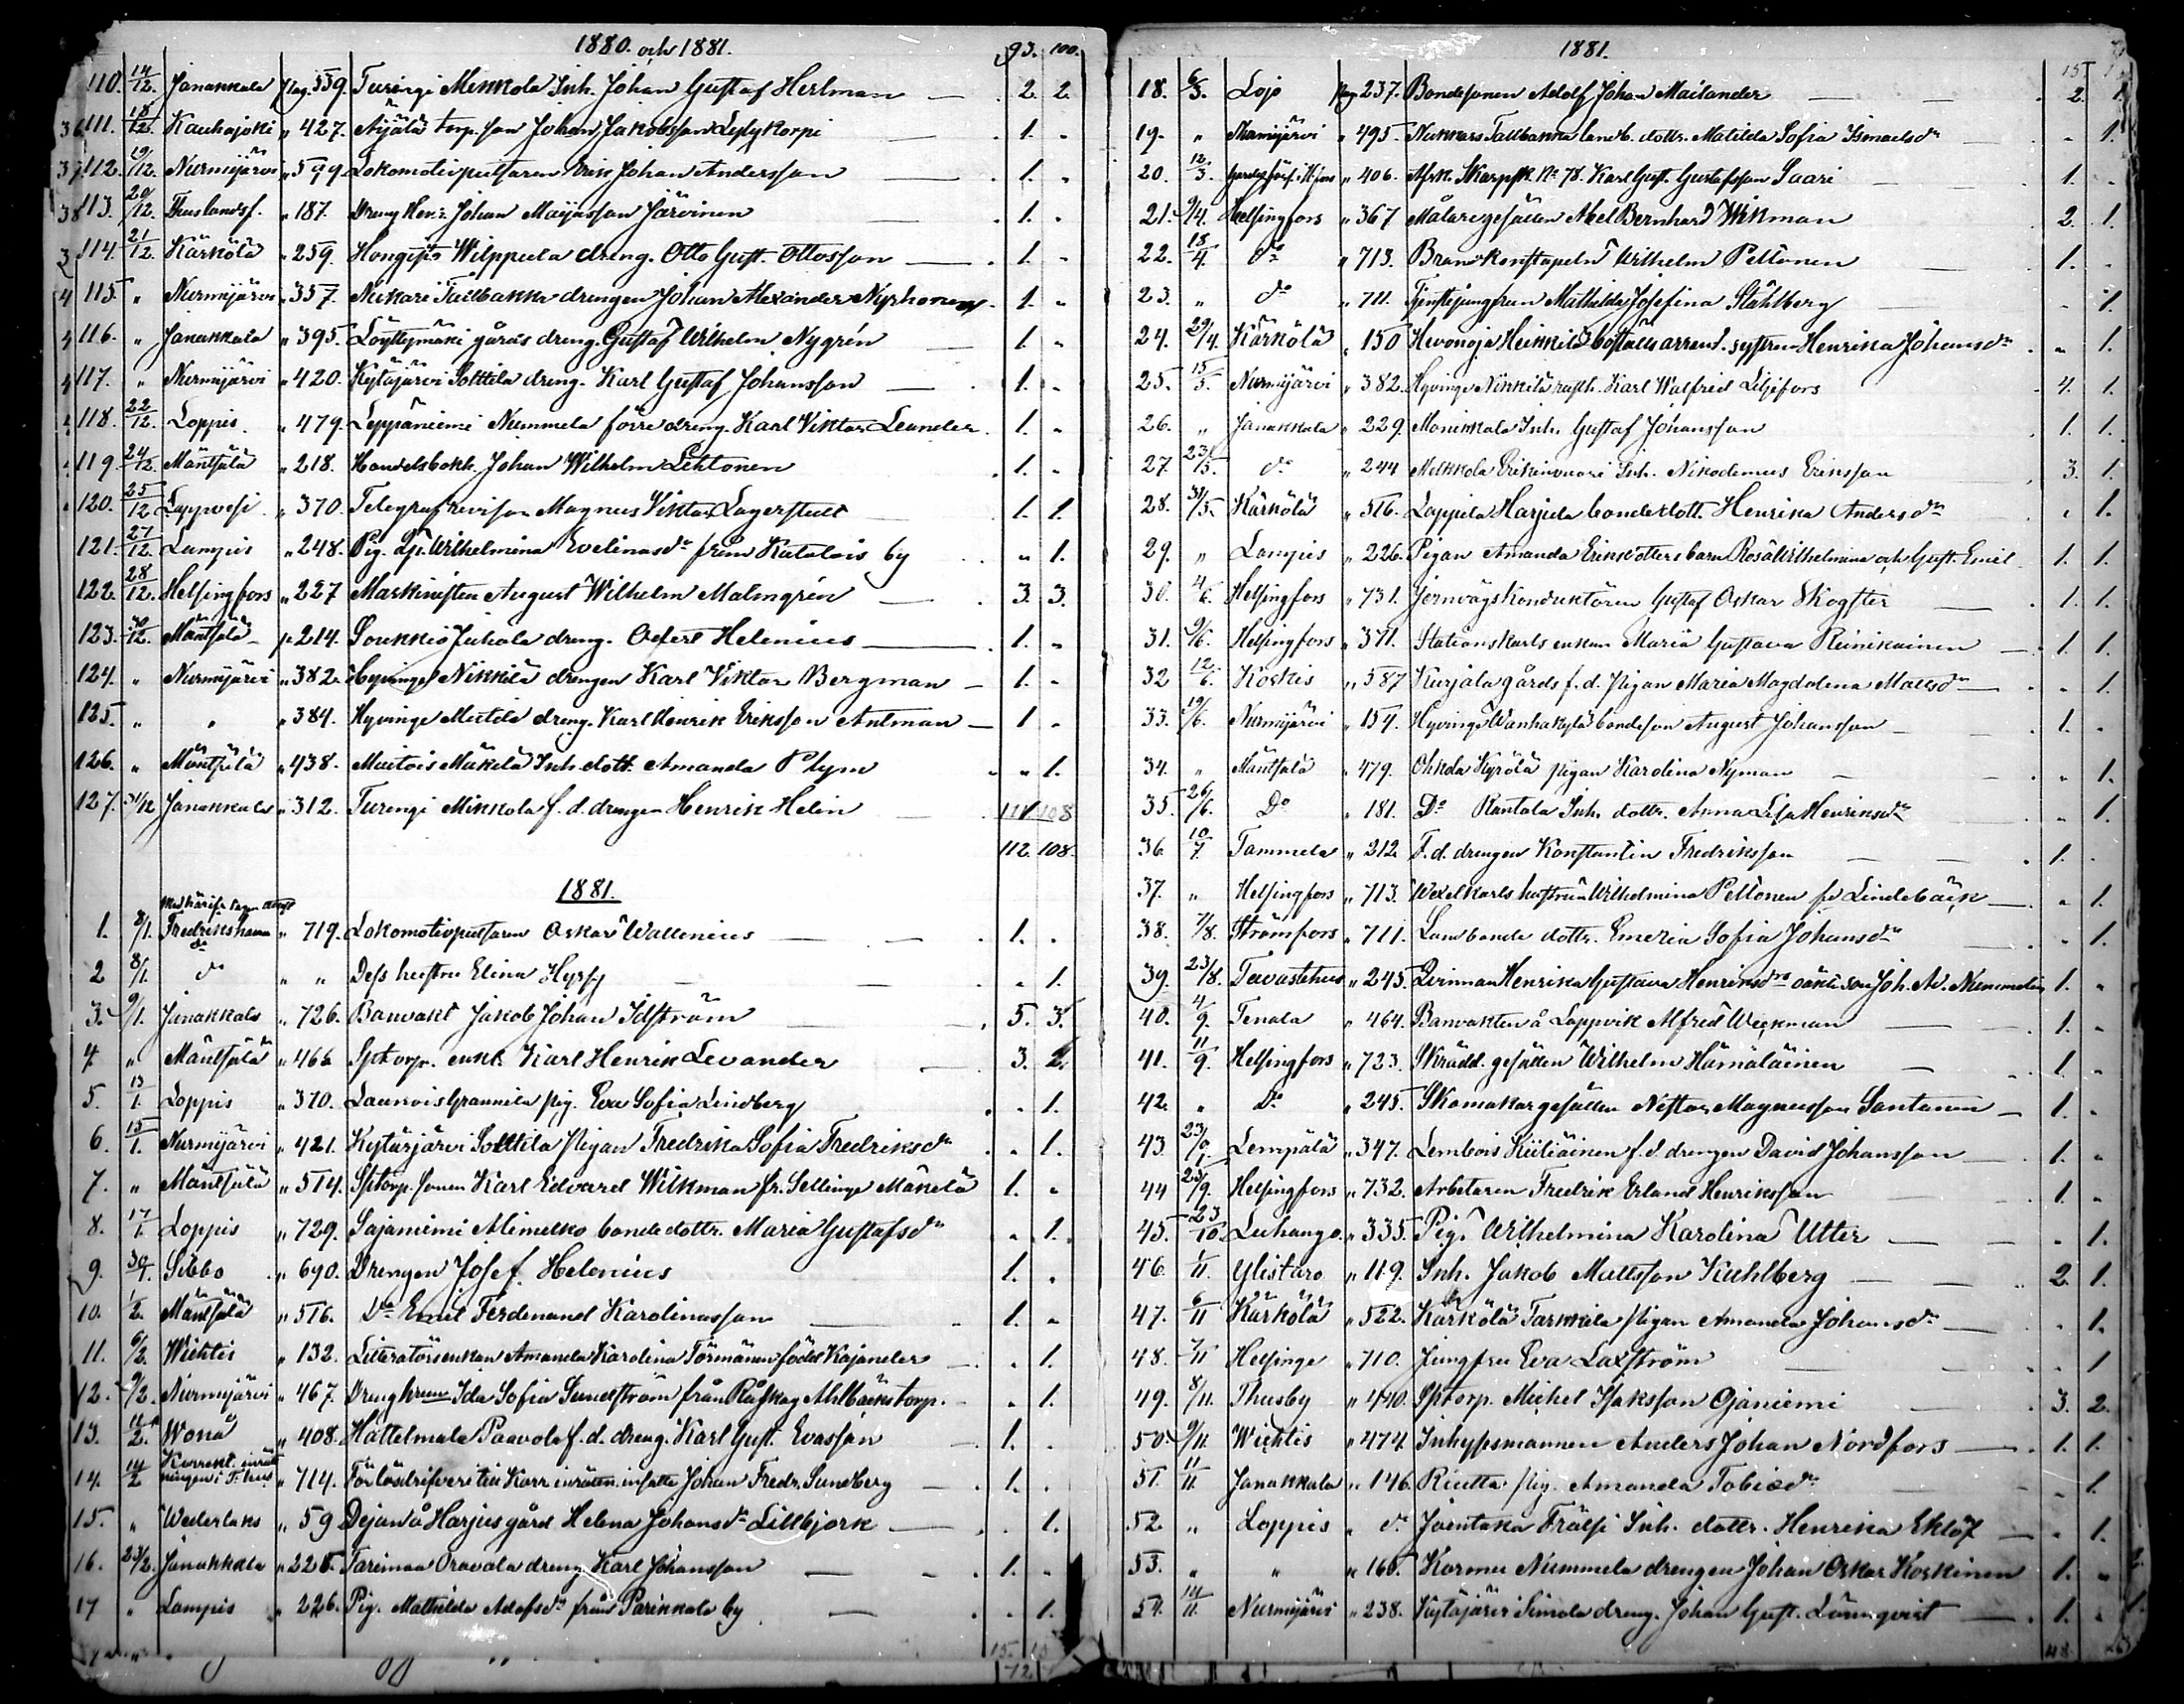 1880. och 1881. 93. 100.
110. 14/12. Janakkala pag. 559. Turengi Mikkola Inh. Johan Gustaf Herlman 2. 2.
111. 18/12. Kauhajoki " 427. torp. son Johan Jakobsson 1. "
112. 19/12. Nurmijärvi " 599. Lokomotivputsaren Erik Johan Andersson 1. "
113. 20/12. Thuslandsf. " 187. Dreng Henr. Johan Maijasson Järvinen 1. "
114. 21/12. Kärkölä " 259. Hongisto Wilppula dreng. Otto Gust. Ottosson 1. "
115. " Nurmijärvi " 357. Nukari Tallbakka drengen Johan Alexander Nyrhonen 1. "
116. " Janakkala " 395. Löyttymäki gårds dreng. Gustaf Wilhelm Nygrén 1. "
117. " Nurmijärvi " 420. Kytäjärvi Solttila dreng. Karl Gustaf Johansson 1. "
118. 22/12. Loppis " 479. Leppäniemi Nummela förre dreng. Karl Viktor Leander 1. "
119. 24/12. Mäntsälä " 218. Handelsbokh. Johan Wilhelm Lehtonen 1. "
120. 25/12 Lappvesi " 370. Telegrafrevisor Magnus Viktor Lagerstedt 1. 1.
121. 27/12. Lampis " 248. Pig. Wilhelmina Evelinasdr från Katalois by " 1.
122. 28/12. Helsingfors " 227 Maskinisten August Wilhelm Malmgrén 3. 3.
123. 30/12. Mäntsälä p. 214. Soukkio Juhola dreng. Helenius 1. "
124. " Nurmijärvi " 382. Hyvinge Nikkilä drengen Karl Viktor Bergman 1. "
125. " " " 384. Hyvinge dreng. Karl Henrik Eriksson Antman 1. "
126. " Mäntsälä " 438. Mäkelä Inh. dott. Amanda Plym " 1.
127. 31/12 Janakkala " 312. Turengi Mikkola f. d. drengen Henrik Helin 111 108
112. 108.
1881.
1. 8/1. Fredrikshamn " 719. Lokomotivputsaren Oskar Wallenius 1. .
2 8/1. do " " Dess hustru Elina . 1.
3. 9/1. Janakkala " 726. Banvakt Jakob Johan Idström 5. 3.
4 " Mäntsälä " 466 Sptorp. enkl. Karl Henrik Levander 3. 2.
5. 13/1. Loppis " 370. Launois pig. Eva Sofia Lindberg . 1.
6. 15/1. Nurmijärvi " 421. Kytäjärvi Solttila pigan Fredrika Sofia Fredriksdr . 1.
7. " Mäntsälä " 514. Sptorp. sonen Karl Edvard Wikman fr. Sellinge Mäkelä 1. "
8. 17/1. Loppis " 729. Sajaniemi bonde dottr. Maria Gustafsdr . 1.
9. 30/1. Sibbo " 690. Drengen Josef Helenius 1. .
10. 1/2. Mäntsälä " 516. Do Emil Ferdinand Karolinasson 1. "
11. 6/2. Wichtis " 132. Amanda Karolina Törmänen född Kajander . 1.
12. 9/2. Nurmijärvi " 467. Ida Sofia Sundström från torp. . 1.
13. 12/2. " 408. Hattelmala Paavola f. d. dreng. Karl Gust. Evasson 1. .
14. 14/2 " 714. Johan Fredr. Sundberg 1. .
15. " Wederlaks " 59 Dejan å Harju gård Helena Johansdr Lillbjork . 1.
16. 23/2. Janakkala " 225. Oravala dreng Karl Johansson 1. "
17 " Lampis " 226. Pig. Mathilda Adolfsdr från Parikkala by . 1.
15. 15
1881.
18. 6/3. Lojo pag 237. Bondesonen Adolf Johan Mailander 2. 1.
19. " Nurmijärvi " 495. Tallbakka landb. dottr. Matilda Sofia " 1.
20. 12/3. " 406. Skarpsk. No 78. Karl Gust. Gustafsson Saari 1. .
21. 9/4. Helsingfors " 367 Målaregesällen Abel Bernhard Wikman 2. 1.
22. 18/4. do " 713. Brandkonstapeln Wilhelm Peltonen 1. .
23. " do " 711. Tjenstejungfrun Mathilda Josefina Ståhlberg . 1.
24. 29/4. Kärkölä " 150 Hevonoja Heikkilä boställs arrend. systren Henrika Johansdr " 1.
25. 15/5. Nurmijärvi " 382. Hyvinge Nikkilä Karl Walfrid Liljefors 4. 1.
26. " Janakkala " 229. Monikkala Inh. Gustaf Johansson 1. 1.
27. 23/5. do " 244 Inh. Nikodemus Eriksson 3. 1.
28. 31/5. Kärkölä " 516. Lappila Harjula bondedott. Henrika Andersdr . 1.
29. " Lampis " 226. Pigan Amanda Eriksdotters barn Rosa Wilhelmina och Gust. Emil 1. 1.
30. 4/6. Helsingfors " 731. Jernvägskonduktören Gustaf Oskar Skogster 1. 1.
31. 9/6. Helsingfors " 371. Stationskarls enkan Maria Gustava Reinikainen 1. 1.
32 12/6. Koskis " 587 Kurjala gårds f. d. pigan Maria Magdalena Mattsdr . 1.
33. 19/6. Nurmijärvi " 154. Hyvinge Wanhakylä bondeson August Johansson 1. .
34. " Mäntsälä " 479. Ohkola Kyrölä pigan Karolina Nyman . 1.
35. 26/6. Do " 181. Do Rantala Inh. dottr. Anna Lisa Henriksdr . 1.
36 10/7. Tammela " 212. F. d. drengen Konstantin Fredriksson 1. .
37. " Helsingfors " 713. Wexelkarls hustrun Wilhelmina Peltonen fd Lindebäck . 1.
38. 7/8. Strömfors " 711. Landbonde dottr. Emeria Sofia Johansdr . 1.
39. 23/8. Tavastehus " 245. Qvinnan Henrika Gustava Henriksdrs oäkta son Joh. Ad. Nummelin 1. "
40. 4/9. Tenala " 464. Banvakten å Lappvik Alfred Weckman 1. "
41. 11/9. Helsingfors " 723. Skrädd. gesällen Wilhelm Hämäläinen 1. "
42. " Do " 245. Skomakargesällen Nestor Magnusson Santanen 1. .
43. 23/9. Lempälä " 347. Lembois f. d. drengen David Johansson 1. "
44 25/9. Helsingfors " 732. Arbetaren Fredrik Erland Henriksson 1. "
45. 23/10. Luhango " 335. Pig. Wilhelmina Karolina Utter . 1.
46. 1/11. Ylistaro " 119. Inh. Jakob Mattsson Kuhlberg 2. 1.
47. 6/11 Kärkölä " 522. Kärkölä Tarkkila pigan Amanda Johansdr . 1.
48. 7/11 Helsinge " 710. Jungfru Eva Laxström . 1
49. 8/11. Thusby " 440. Sptorp. Michel Isaksson Ojaniemi 3. 2.
50. 9/11. Wichtis " 474. Inhysesmannen Anders Johan Nordfors 1. 1.
51. 11/11. Janakkala " 146. pig. Amanda Tobiasdr . 1.
52. " Loppis " do Joentaka Inh. dottr. Henrika Eklöf . 1.
53. " " " 165. Kormu Nummela drengen Johan Oskar Koskinen 1. "
54. 14/11. Nurmijärvi " 238. Kytäjärvi Simola dreng. Johan Gust. Lönnqvist 1. .
48.